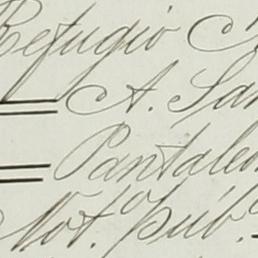 Refugio
A. San
Pantaleon
Not. púb.